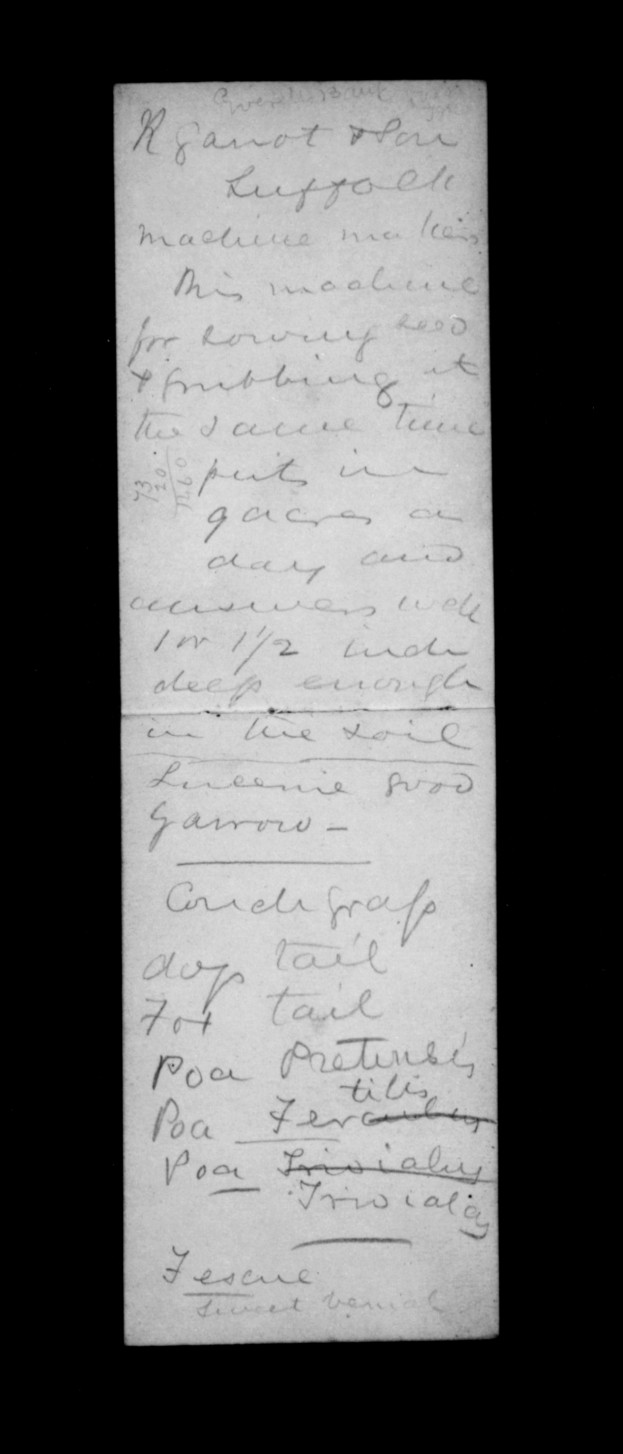 R Garrot & Son
Suffolk
machine makers
This machine
for sowing seed
& grubbing at
the same time
puts in
9 acres a
day and
answers well
1 or 1½ inch
deep enough
in the soil
Lucerne good
Garrow -
Couch graſs
dog tail
Fox tail
Poa Pretensis
tilis
Poa Fer
Poa Trivialus
Trivialas
Fescue
Sweet vernal
73
20
1460